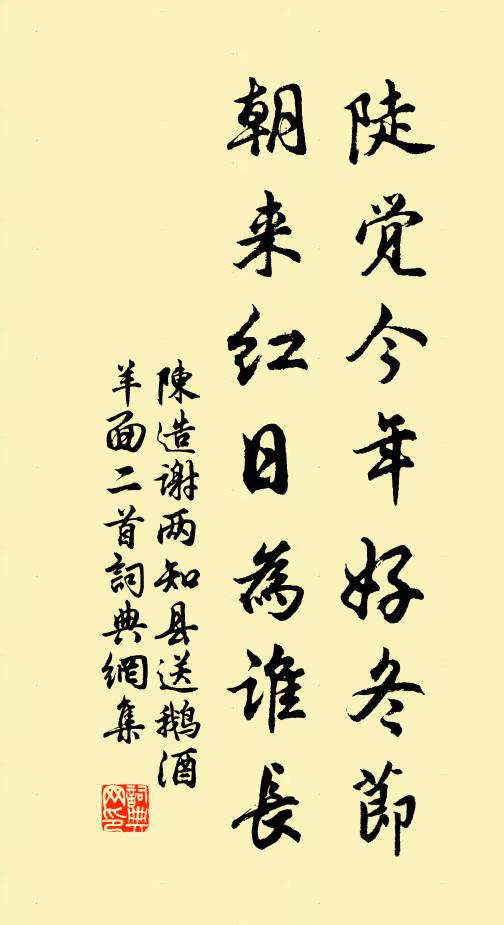 陡觉今年好冬节
朝来红日為谁長
陳造谢两知县送鹅酒
羊面二首詞典網集
詞典网印